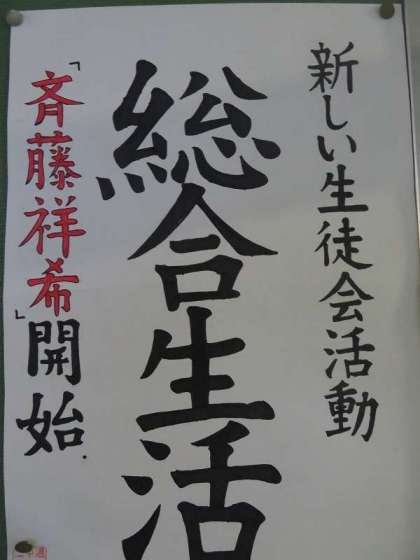 新しい生徒会活動
総合生活
「斉藤祥希」開始